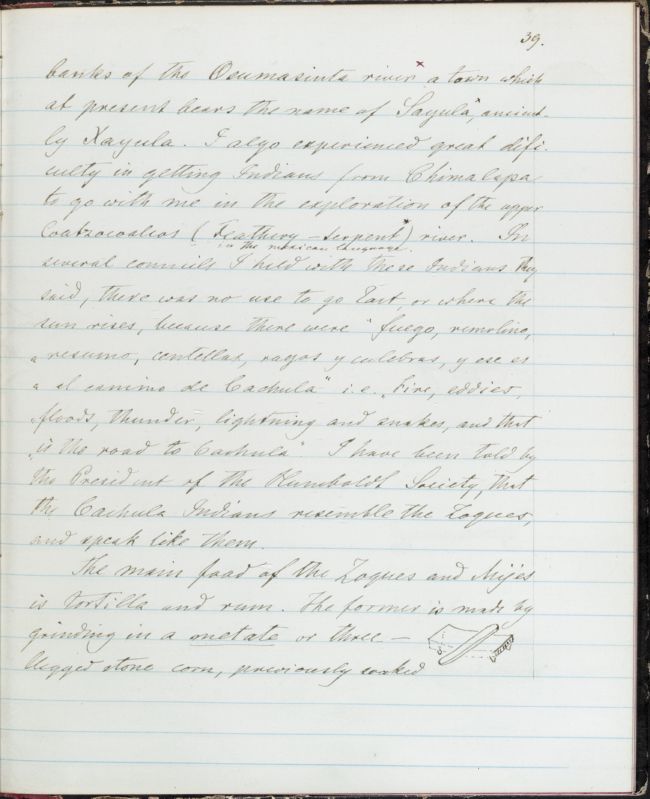 39.
banks of the Osumasinta river × a town which
at present bears the name of Sayula", ancient-
ly Xayula. I algo experienced great difi-
culty in getting Indians from Chimalapa
to go with me in the exploration of the upper
Coatzocoalcos (Feathery-serpent*) river. In
in the mexican language.
several councils I held with these Indians they
said, there was no use to go East, or where the
sun rises, because there were "fuego, remolino,
" resumo, centellas, rayos y culebras, y ese es
" el camino de Cachula" i.e. "Fire, eddies,
floods, thunder, lightning and snakes, and that
"is the road to Cachula". I have been told by
the President of the Humboldt Society, that
the Cachula Indians resemble the Zoques,
and speak like them.
The main food of the Zoques and Mijes
is tortilla and rum. The former is made by
grinding in a metate or three-
legged stone corn, previously soaked